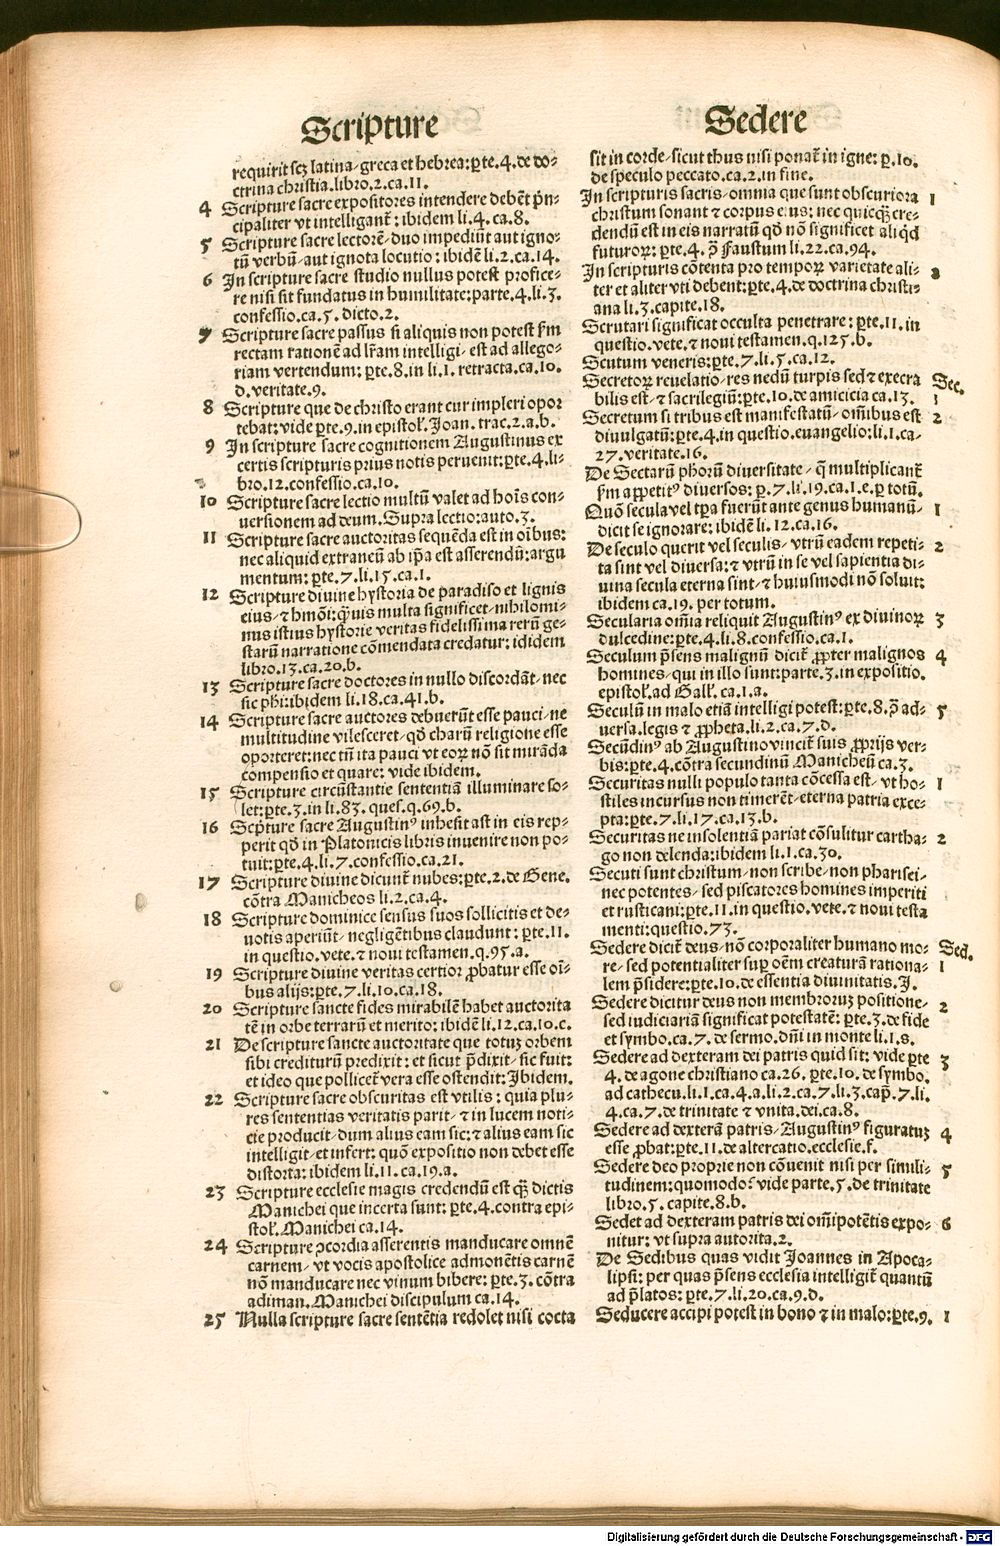 Scripture
requirit scꝫ latina/greca et hebrea: ꝑte.4.de do-
ctrina christia.libro.2.ca.11.
4 Scripture sacre expositores intendere debēt pͥn-
cipaliter vt intelligant᷑: ibidem li.4.ca.8.
5 Scripture sacre lectorē/duo impediūt aut igno-
tū verbū/aut ignota locutio: ibidē li.2.ca.14.
6 In scripture sacre studio nullus potest profice-
re nisi sit fundatus in humilitate: parte.4.li.3.
confessio.ca.5.dicto.2.
7 Scripture sacre passus si aliquis non potest ẜm
rectam rationē ad lr̄am intelligi/est ad allego-
riam vertendum: ꝑte.8.in li.1.retracta.ca.10.
d.veritate.9.
8 Scripture que de christo erant cur impleri opor
tebat: vide ꝑte.9.in epistoł.Joan.trac.2.a.b.
9 In scripture sacre cognitionem Augustinus ex
certis scripturis prius notis peruenit: ꝑte.4.li-
bro.12.confessio.ca.10.
10 Scripture sacre lectio multū valet ad hoīs con-
uersionem ad deum.Supra lectio: auto.3.
11 Scripture sacre auctoritas sequēda est in oībus:
nec aliquid extraneū ab ip̄a est asserendū: argu
mentum: ꝑte.7.li.15.ca.1.
12 Scripture diuine hystoria de paradiso et lignis
eius/⁊ hmōi: q̄uis multa significet/nihilomi-
nus istius hystorie veritas fidelissima rerū ge-
starū narratione cōmendata credatur: ididem
libro.13.ca.20.b.
13 Scripture sacre doctores in nullo discordāt/nec
sic phī: ibidem li.18.ca.41.b.
14 Scripture sacre auctores debuerūt esse pauci/ne
multitudine vilesceret/qd̄ charū religione esse
oporteret: nec tn̄ ita pauci vt eoꝝ nō sit mirāda
compensio et quare: vide ibidem.
15 Scripture circūstantie sententiā illuminare so-
let: ꝑte.3.in li.83.ques.q.69.b.
16 Scp̄ture sacre Augustinꝰ inhesit ast in eis rep-
perit qd̄ in Platonicis libris inuenire non po-
tuit: ꝑte.4.li.7.confessio.ca.21.
17 Scripture diuine dicunt᷑ nubes: ꝑte.2.de Gene.
cōtra Manicheos li.2.ca.4.
18 Scripture dominice sensus suos sollicitis et de-
uotis aperiūt/negligētibus claudunt: ꝑte.11.
in questio.vete.⁊ noui testamen.q.95.a.
19 Scripture diuine veritas certior ꝓbatur esse oī-
bus alijs: ꝑte.7.li.10.ca.18.
20 Scripture sancte fides mirabilē habet auctorita
tē in orbe terrarū et merito: ibidē li.12.ca.10.c.
21 De scripture sancte auctoritate que totuꝫ orbem
sibi crediturū predixit: et sicut p̄dixit/sic fuit:
et ideo que pollicet᷑ vera esse ostendit: Ibidem.
22 Scripture sacre obscuritas est vtilis: quia plu-
res sententias veritatis parit/⁊ in lucem noti-
cie producit/dum alius eam sic: ⁊ alius eam sic
intelligit/et infert: quō expositio non debet esse
distorta: ibidem li.11.ca.19.a.
23 Scripture ecclesie magis credendū est q̄ꝫ dictis
Manichei que incerta sunt: ꝑte.4.contra epi-
stoł.Manichei ca.14.
24 Scripture ꝯcordia asserentis manducare omnē
carnem/vt vocis apostolice admonētis carnē
nō manducare nec vinum bibere: ꝑte.3.cōtra
adiman.Manichei discipulum ca.14.
25 Nulla scripture sacre sentētia redolet nisi cocta
Sedere
sit in corde/sicut thus nisi ponat᷑ in igne: p.10.
de speculo peccato.ca.2.in fine.
In scripturis sacris/omnia que sunt obscuriora 1
christum sonant ⁊ corpus eius: nec quicq̄ꝫ cre-
dendū est in eis narratū qd̄ nō significet aliqͥd
futuroꝝ: ꝑte.4.ꝯ̄ Faustum li.22.ca.94.
In scripturis cōtenta pro tempoꝝ varietate ali- 2
ter et aliter vti debent: ꝑte.4.de doctrina christi-
ana li.3.capite.18.
Scrutari significat occulta penetrare: ꝑte.11.in
questio.vete.⁊ noui testamen.q.125.b.
Scutum veneris: ꝑte.7.li.5.ca.12.
Secretoꝝ reuelatio/res nedū turpis sed ⁊ execra Sec.
bilis est/⁊ sacrilegiū: ꝑte.10.de amicicia ca.13. 1
Secretum si tribus est manifestatū/oīnibus est 2
diuulgatū: ꝑte.4.in questio.euangelio: li.1.ca-
27.veritate.16.
De Sectarū ph̄orū diuersitate/q̄ multiplicant᷑
ẜm appetitꝰ diuersos: p.7.li.19.ca.1.e.ꝑ totū.
Quō secula vel tp̄a fuerūt ante genus humanū/ 1
dicit se ignorare: ibidē li.12.ca.16.
De seculo querit vel seculis/vtrū eadem repeti- 2
ta sint vel diuersa: ⁊ vtrū in se vel sapientia di-
uina secula eterna sint/⁊ huiusmodi nō soluit:
ibidem ca.19.per totum.
Secularia oīnia reliquit Augustinꝰ ex diuinoꝝ 3
dulcedine: ꝑte.4.li.8.confessio.ca.1.
Seculum p̄sens malignū dicit᷑ ꝓpter malignos 4
homines/qui in illo sunt: parte.3.in expositio.
epistoł.ad Gall̄.ca.1.a.
Seculū in malo etiā intelligi potest: ꝑte.8.ꝯ̄ ad- 5
uersa.legis ⁊ ꝓpheta.li.2.ca.7.d.
Secūdinꝰ ab Augustino vincit᷑ suis ꝓprijs ver-
bis: ꝑte.4.cōtra secundinū Manicheū ca.3.
Securitas nulli populo tanta cōcessa est/vt ho- 1
stiles incursus non timerēt/eterna patria exce-
pta: ꝑte.7.li.17.ca.13.b.
Securitas ne insolentiā pariat cōsulitur cartha- 2
go non delenda: ibidem li.1.ca.30.
Secuti sunt christum/non scribe/non pharisei/
nec potentes/sed piscatores homines imperiti
et rusticani: ꝑte.11.in questio.vete.⁊ noui testa
menti: questio.73.
Sedere dicit᷑ deus/nō corporaliter humano mo- Sed.
re/sed potentialiter suꝑ oēm creaturā rationa- 1
lem p̄sidere: ꝑte.10.de essentia diuinitatis.J.
Sedere dicitur deus non membroruꝫ positione/ 2
sed iudiciariā significat potestatē: ꝑte.3.de fide
et symbo.ca.7.de sermo.dn̄i in monte li.1.s.
Sedere ad dexteram dei patris quid sit: vide ꝑte 3
4.de agone christiano ca.26.ꝑte.10.de symbo.
ad cathecu.li.1.ca.4.a.li.2.ca.7.li.3.cap̄.7.li.
4.ca.7.de trinitate ⁊ vnita.dei.ca.8.
Sedere ad dexterā patris/Augustinꝰ figuratuꝫ 4
esse ꝓbat: ꝑte.11.de altercatio.ecclesie.f.
Sedere deo proprie non cōuenit nisi per simili- 5
tudinem: quomodo: vide parte.5.de trinitate
libro.5.capite.8.b.
Sedet ad dexteram patris dei oīnipotētis expo- 6
nitur: vt supra autorita.2.
De Sedibus quas vidit Joannes in Apoca-
lipsi: per quas p̄sens ecclesia intelligit᷑ quantū
ad p̄latos: ꝑte.7.li.20.ca.9.d.
Seducere accipi potest in bono ⁊ in malo: ꝑte.9. 1
Digitalisierung gefördert durch die Deutsche Forschungsgemeinschaft - DFG